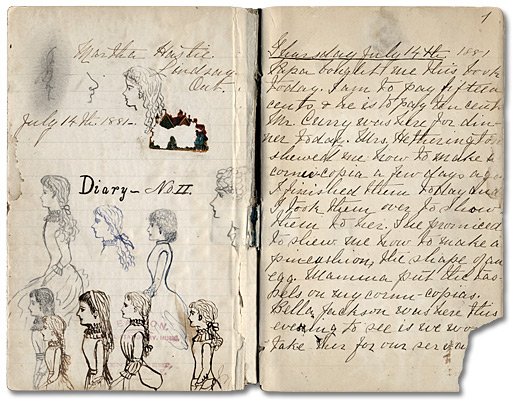 Martha Hastie
Lindsay
Ont.
July 14th 1881.
Diary - No II.
1
Thursday July 14th 1881
Papa bought me this book
today. I am to pay fifteen
cents, & he is to pay ten cents
Mr Curry was here for din-
ner today. Mrs. Hetherington
shewed me how to make a
cornucopia a few days ago
I finished them today and
I took them over to show
them to her. She promiced
to shew me how to make a
pincushion, the shape of an
egg. Mamma put the tas-
sels on my cornu-copias.
Bella Jackson was here this
evening to see is we wo
take her for our serva